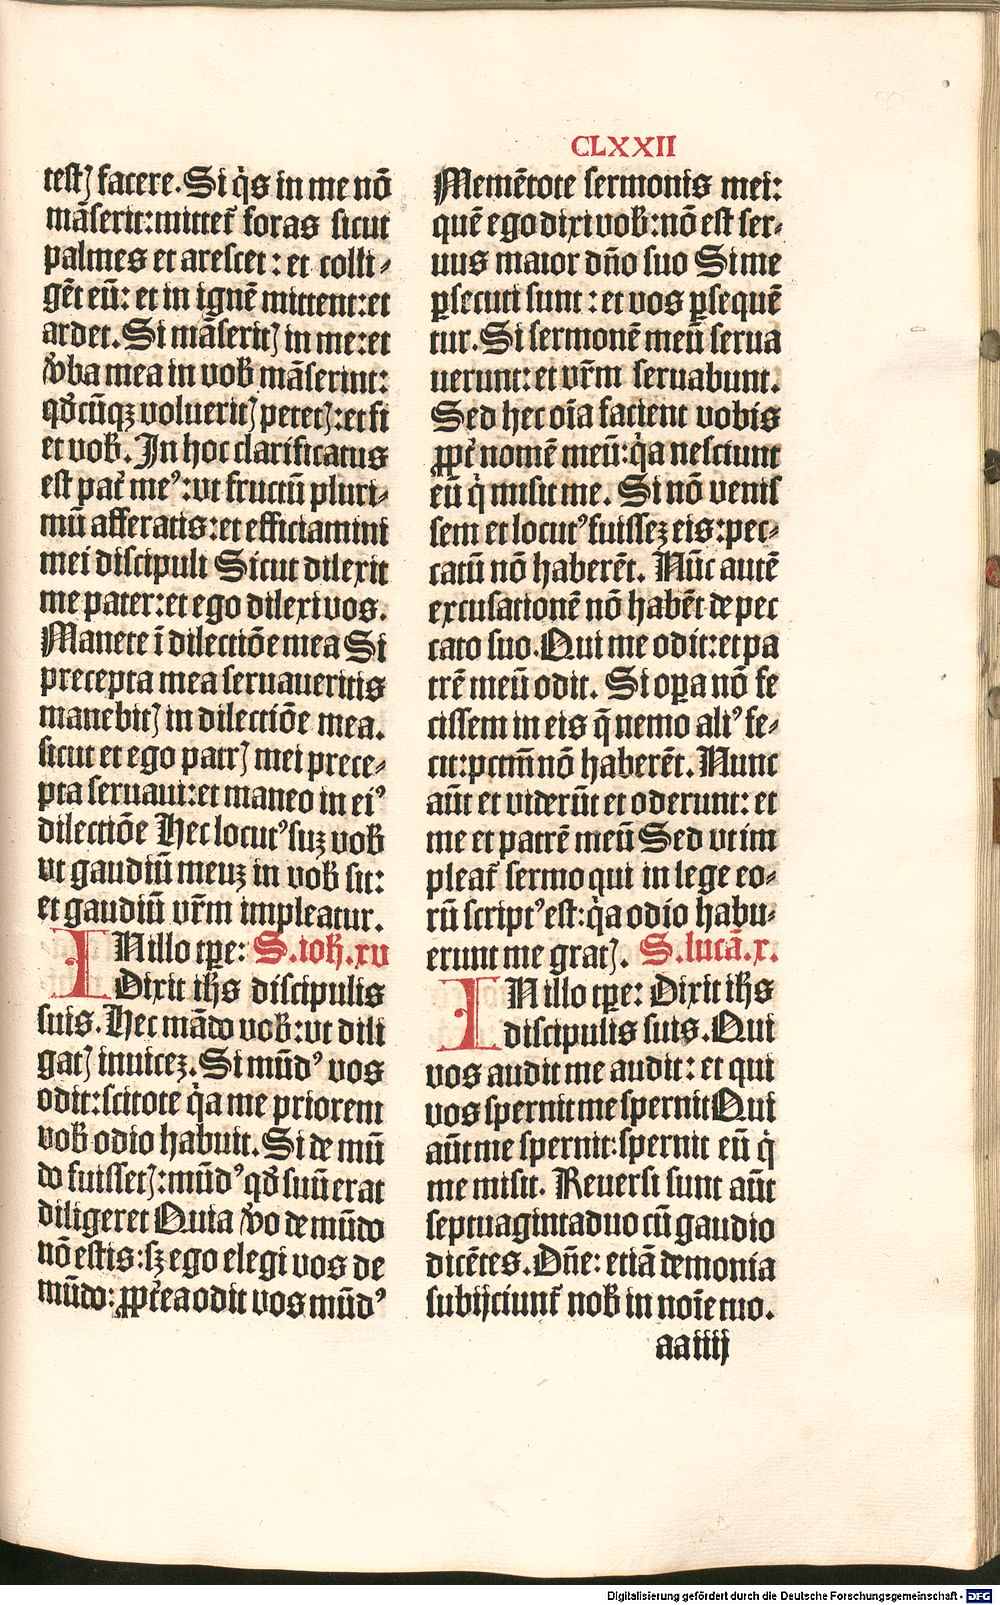 CLXXII
testꝭ facere. Si q̇s in me nō
māserit: mittet᷑ foras sicut
palmes et arescet: et colli⸗
gēt eū: et in ignē mittent: et
ardet. Si māseritꝭ in me: et
v̓ba mea in vob̄ māserint:
qd̓cūqꝫ volueritꝭ petetꝭ: et fi
et vob̄. In hoc clarificatus
est pat̓ me⁹: vt fructū pluri⸗
mū afferatis: et efficiamini
mei discipuli Sicut dilexit
me pater: et ego dilexi vos.
Manete ī dilectiōe mea Si
precepta mea seruaueritis
manebitꝭ in dilectiōe mea.
sicut et ego patrꝭ mei prece⸗
pta seruaui: et maneo in ei⁹
dilectiōe Hec locut⁹ suꝫ vob̄
vt gaudiū meuꝫ in vob̄ sit:
et gaudiū vr̄m impleatur.
IN illo tp̄e: S. ioh̄. xv
Dixit ih̄s discipulis
suis. Hec mādo vob̄: vt dili
gatꝭ inuiceꝫ. Si mūd⁹ vos
odit: scitote q̇a me priorem
vob̄ odio habuit. Si de mū
do fuissetꝭ: mūd⁹ qd̓ suū erat
diligeret Quia v̓o de mūdo
nō estis: sꝫ ego elegi vos de
mūdo: ꝓpt̓ea odit vos mūd⁹
Memētote sermonis mei:
quē ego dixi vob̄: nō est ser⸗
uus maior dn̄o suo Si me
ꝑsecuti sunt: et vos ꝑsequē
tur. Si sermonē meū serua
uerunt: et vr̄m seruabunt.
Sed hec oīa facient vobis
ꝓpt̓ nomē meū: q̇a nesciunt
eū q̇ misit me. Si nō venis
sem et locut⁹ fuisseꝫ eis: pec⸗
catū nō haberēt. Nūc autē
excusationē nō habēt de pec
cato suo. Qui me odit: et pa
trē meū odit. Si oꝑa nō fe
cissem in eis q̄ nemo ali⁹ fe⸗
cit: pctm̄ nō haberēt. Nunc
aūt et viderūt et oderunt: et
me et patrē meū Sed vt im
pleat᷑ sermo qui in lege eo⸗
rū script⁹ est: q̇a odio habu⸗
erunt me gratꝭ. S. lucā. x.
IN illo tp̄e: Dixit ih̄s
discipulis suis. Qui
vos audit me audit: et qui
vos spernit me spernit Qui
aūt me spernit: spernit eū q̇
me misit. Reuersi sunt aūt
septuagintaduo cū gaudio
dicētes. Dn̄e: etiā demonia
subijciunt᷑ nob̄ in noīe tuo.
aa iiij
Digitalisierung gefördert durch die Deutsche Forschungsgemeinschaft - DFG